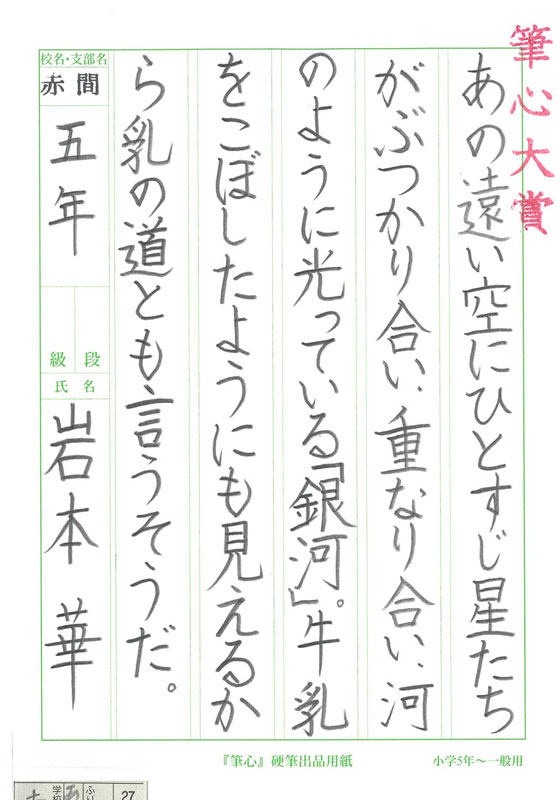 筆心大賞
あの遠い空にひとすじ星たち
がぶつかり合い、重なり合い、河
のように光っている「銀河」。牛乳
をこぼしたようにも見えるか
ら乳の道とも言うそうだ。
校名・支部名
赤間
五年
段級
氏名
岩本華
『筆心』硬筆出品用紙
小学5年〜一般用
27